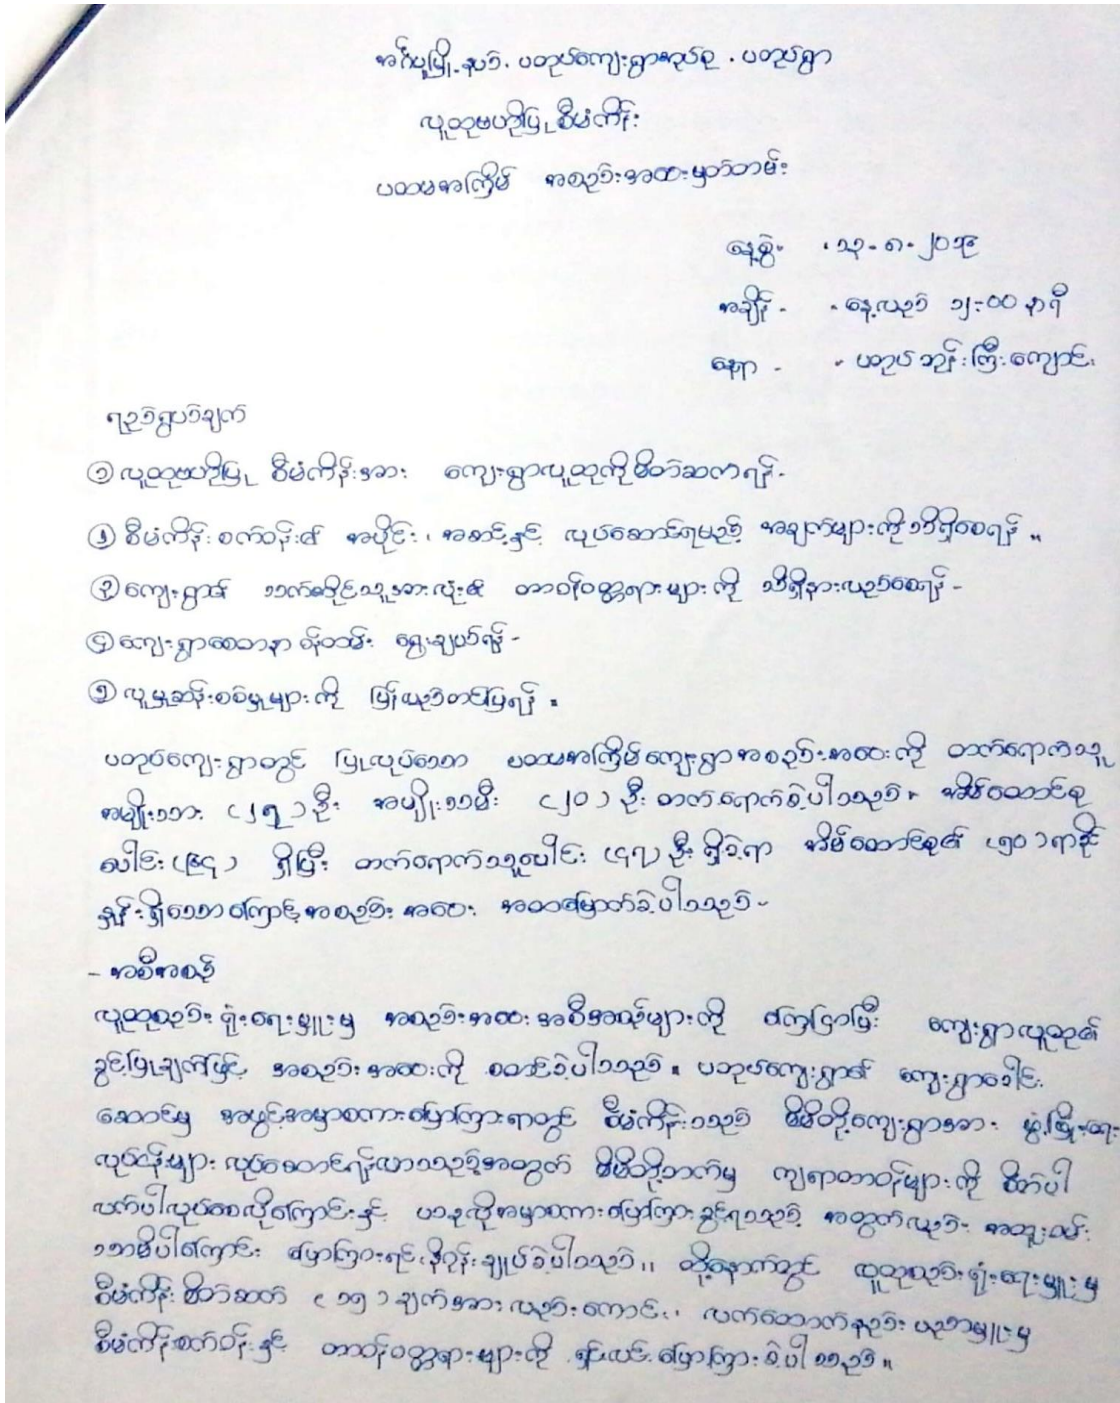 အင်္ဂပူမြို့နယ်၊ ပတုပ်ကျေးရွာအုပ်စု၊ ပတုပ်ရွာ
လူထုဗဟိုပြုစီမံကိန်း
ပထမအကြိမ် အစည်းအဝေးမှတ်တမ်း
နေ့စွဲ -
အချိန် - နေ့လယ် ၁၂:၀၀ နာရီ
နေရာ - ပတုပ်ဘုန်းကြီးကျောင်း
ရည်ရွယ်ချက်
၁ လူထုဗဟိုပြု စီမံကိန်းအား ကျေးရွာလူထုကိုမိတ်ဆက်ရန်-
၂ စီမံကိန်းစက်ဝန်း၏ အပိုင်း၊ အဆင့်နှင့် လုပ်ဆောင်ရမည့် အချက်များကိုသိရှိစေရန်။
၃ ကျေးရွာ၏ သက်ဆိုင်သူအားလုံး၏ တာဝန်ဝတ္တရားများကို သိရှိနားလည်စေရန်-
၄ ကျေးရွာစေတနာ့ဝန်ထမ်း ရွေးချယ်ရန်-
၅ လူမှုဆန်းစစ်မှုများကို ပြန်လည်တင်ပြရန်။
ပတုပ်ကျေးရွာတွင် ပြုလုပ်သော ပထမအကြိမ်ကျေးရွာအစည်းအဝေးကို တက်ရောက်သူ
အမျိုးသား (၂၇) ဦး အမျိုးသမီး (၂၀) ဦး တက်ရောက်ခဲ့ပါသည်။ အိမ်ထောင်စု
ပေါင်း (၉၄) ရှိပြီး တက်ရောက်သူပေါင်း (၄၇) ဦး ရှိခဲ့ရာ အိမ်ထောင်စု၏ (၅၀) ရာခိုင်
နှုန်းရှိသောကြောင့် အစည်းအဝေး အထမြောက်ခဲ့ပါသည်-
- အစီအစဉ်
လူထုစည်းရုံးရေးမှူးမှ အစည်းအဝေးအစီအစဉ်များကို ကြေငြာပြီး ကျေးရွာလူထု၏
ခွင့်ပြုချက်ဖြင့် အစည်းအဝေးကို စတင်ခဲ့ပါသည်။ ပတုပ်ကျေးရွာ၏ ကျေးရွာခေါင်း
ဆောင်မှ အဖွင့်အမှာစကားပြောကြားရာတွင် စီမံကိန်းသည် မိမိတို့ကျေးရွာအား ဖွံ့ဖြိုးရေး
လုပ်ငန်းများ လုပ်ဆောင်ရန်လာသည့်အတွက် မိမိတို့ဘက်မှ ကျရာတာဝန်များကို စိတ်ပါ
လက်ပါလုပ်စေလိုကြောင်းနှင့် ယခုလိုအမှာစကားပြောကြားခွင့်ရသည့် အတွက်လည်း အထူးဝမ်း
သာမိပါကြောင်း ပြောကြားရင်းနိဂုံးချုပ်ခဲ့ပါသည်။ ထို့နောက်တွင် လူထုစည်းရုံးရေးမှူးမှ
စီမံကိန်းမိတ်ဆက် (၁၅) ချက်အား လည်းကောင်း၊ လက်ထောက်နည်းပညာမှူးမှ
စီမံကိန်းစက်ဝန်းနှင့် တာဝန်ဝတ္တရားများကို ရှင်းလင်းပြောကြားခဲ့ပါသည်။